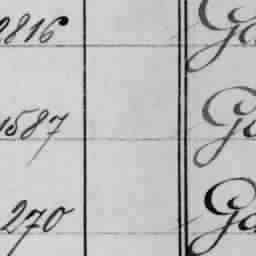 2816 Ga
1587 Ga
270 Ga